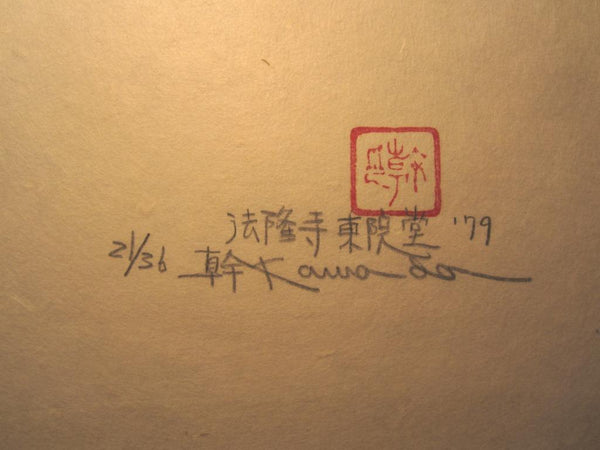 法隆寺東院堂 '79
21/36 幹 Kawada